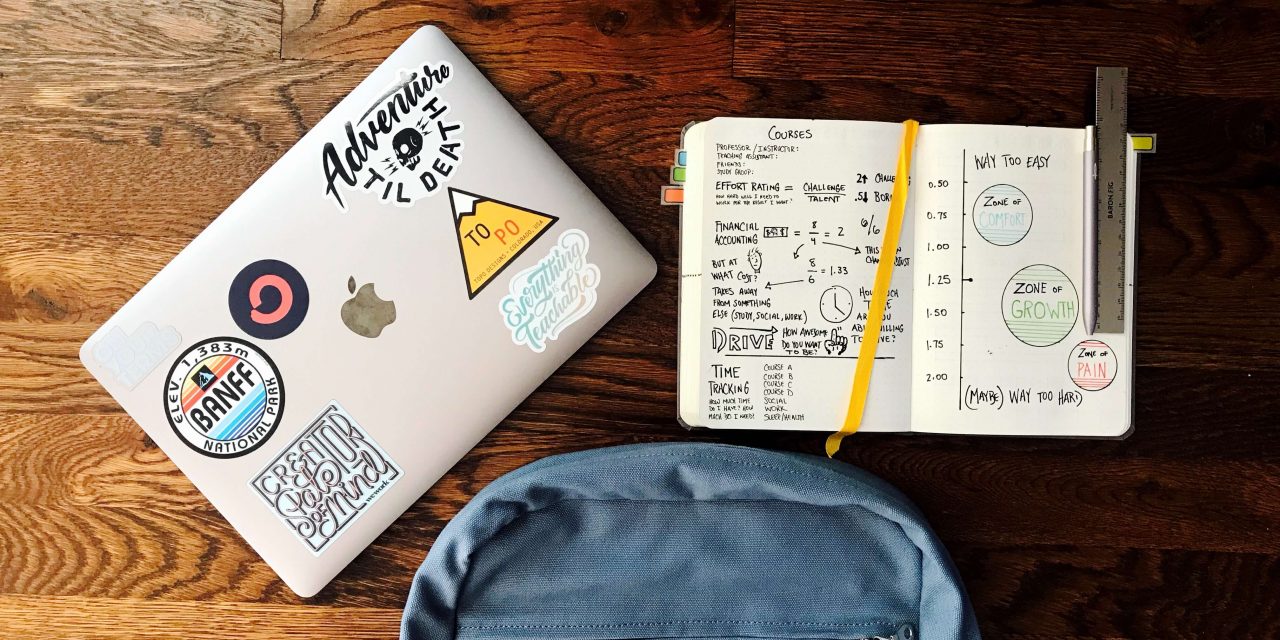 Adventure
TIL DEATH
TO PO
TOPO DESIGNS • COLORADO, USA
Everything
is
Teachable
ELEV. 1,383m
BANFF
NATIONAL PARK
CREATOR
of
Mindy
wework
COURSES
PROFESSOR / INSTRUCTOR:
TEACHING ASSISTANT:
FRIENDS:
STUDY GROUP:
EFFORT RATING = CHALLENGE
TALENT
HOW HARD WILL I NEED TO
WORK FOR THE RESULT I WANT?
2
.5
FINANCIAL
ACCOUNTING
8
4
= 2
6/6
THIS
BUT AT
WHAT COST?
8
6
= 1.33
TAKES AWAY
FROM SOMETHING
ELSE (STUDY, SOCIAL, WORK)
HOW MUCH
ARE YOU
WILLING
DRIVE
HOW AWESOME
DO YOU WANT
TO BE?
TIME
TRACKING
HOW MUCH TIME
DO I HAVE? HOW
MUCH DO I NEED?
COURSE A
COURSE B
COURSE C
COURSE D
SOCIAL
WORK
SLEEP/HEALTH
WAY TOO EASY
0.50
0.75
1.00
1.25
1.50
1.75
2.00
ZONE OF
COMFORT
ZONE OF
GROWTH
ZONE OF
PAIN
(MAYBE) WAY TOO HARD
BARON FIG